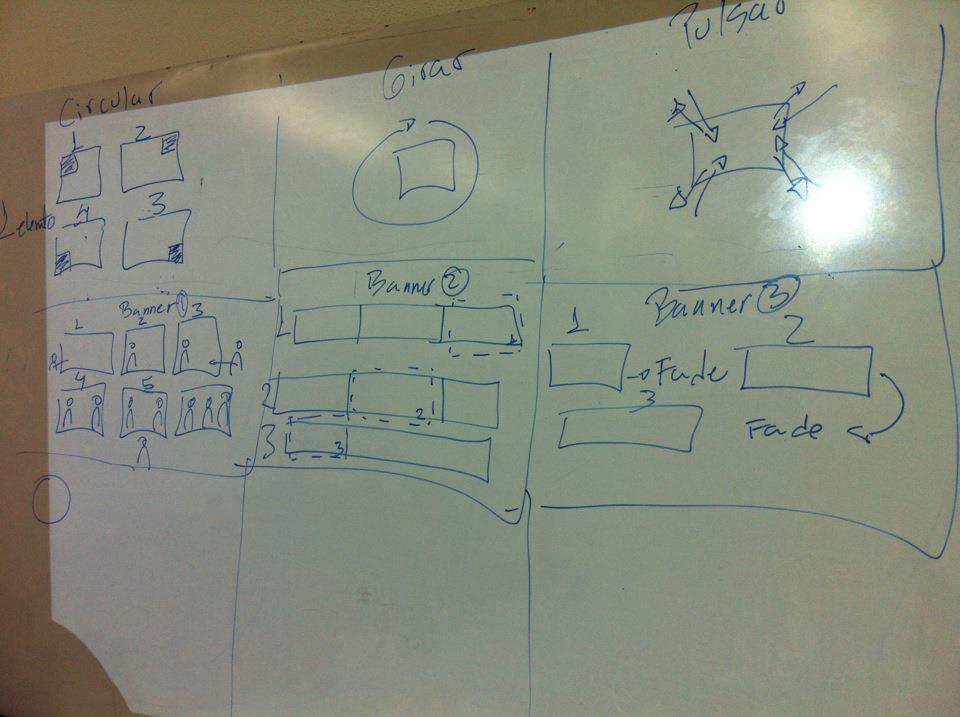 Circular
1
2
4
3
Girar
Pulsar
Banner 1
1
2
3
4
5
Banner 2
1
1
2
2
3
3
Banner 3
1
Fade
2
3
Fade